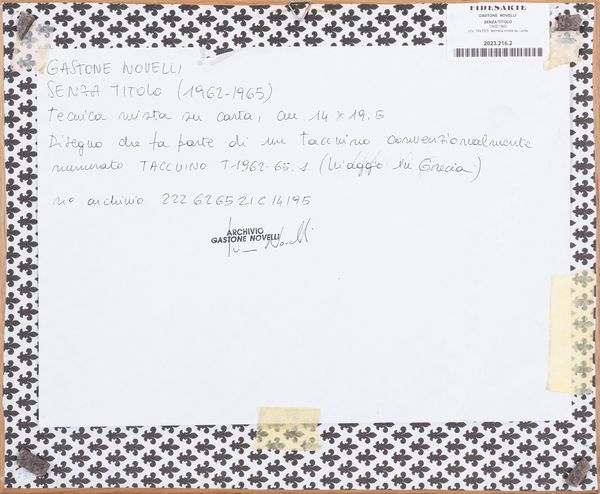 FIDESARTE
GASTONE NOVELLI
SENZA TITOLO
2023.216.2
GASTONE NOVELLI
SENZA TITOLO (1962-1965)
tecnica mista su carta, cm 14 x 19.5
Disegno che fa parte di un taccuino convenzionalmente
numerato TACCUINO T.1962-65.1 (Viaggio in Grecia)
no archivio 222 626521C14195
ARCHIVIO
GASTONE NOVELLI
Novelli